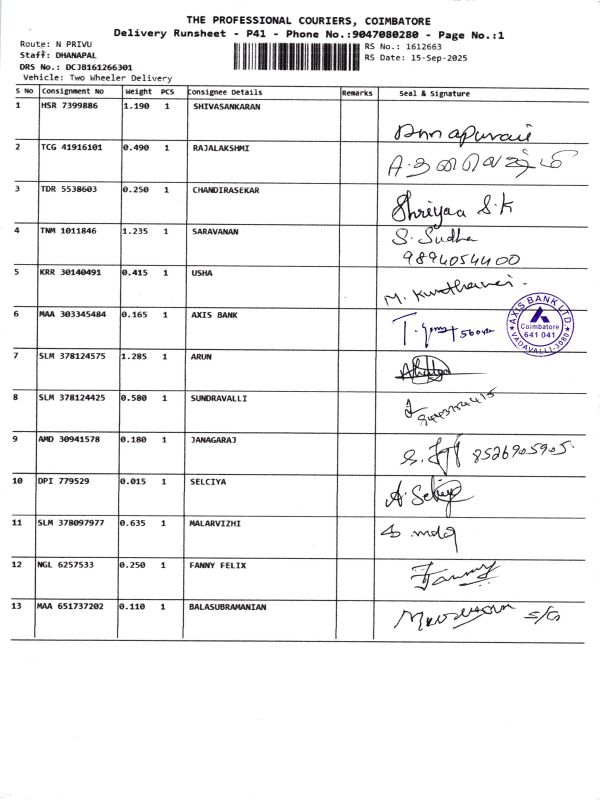 THE PROFESSIONAL COURIERS, COIMBATORE
Delivery Runsheet - P41 - Phone No.:9047080280 - Page No.:1
Route: N PRIVU
RS No.: 1612663
Staff: DHANAPAL
RS Date: 15-Sep-2025
DRS No.: DCJB161266301
Vehicle: Two Wheeler Delivery
S No Consignment No Weight PCS Consignee Details Remarks Seal & Signature
1 HSR 7399886 1.190 1 SHIVASANKARAN
2 TCG 41916101 0.490 1 RAJALAKSHMI
3 TDR 5538603 0.250 1 CHANDIRASEKAR Shreyaa S.K
4 TNM 1011846 1.235 1 SARAVANAN S. Sudha
9894054400
5 KRR 30140491 0.415 1 USHA M.
6 MAA 303345484 0.165 1 AXIS BANK T.
AXIS BANK LTD
Coimbatore
641 041
7 SLM 378124575 1.285 1 ARUN
8 SLM 378124425 0.580 1 SUNDRAVALLI
9 AMD 30941578 0.180 1 JANAGARAJ 8526905905
10 DPI 779529 0.015 1 SELCIYA A.
11 SLM 378097977 0.635 1 MALARVIZHI
12 NGL 6257533 0.250 1 FANNY FELIX Fanny
13 MAA 651737202 0.110 1 BALASUBRAMANIAN